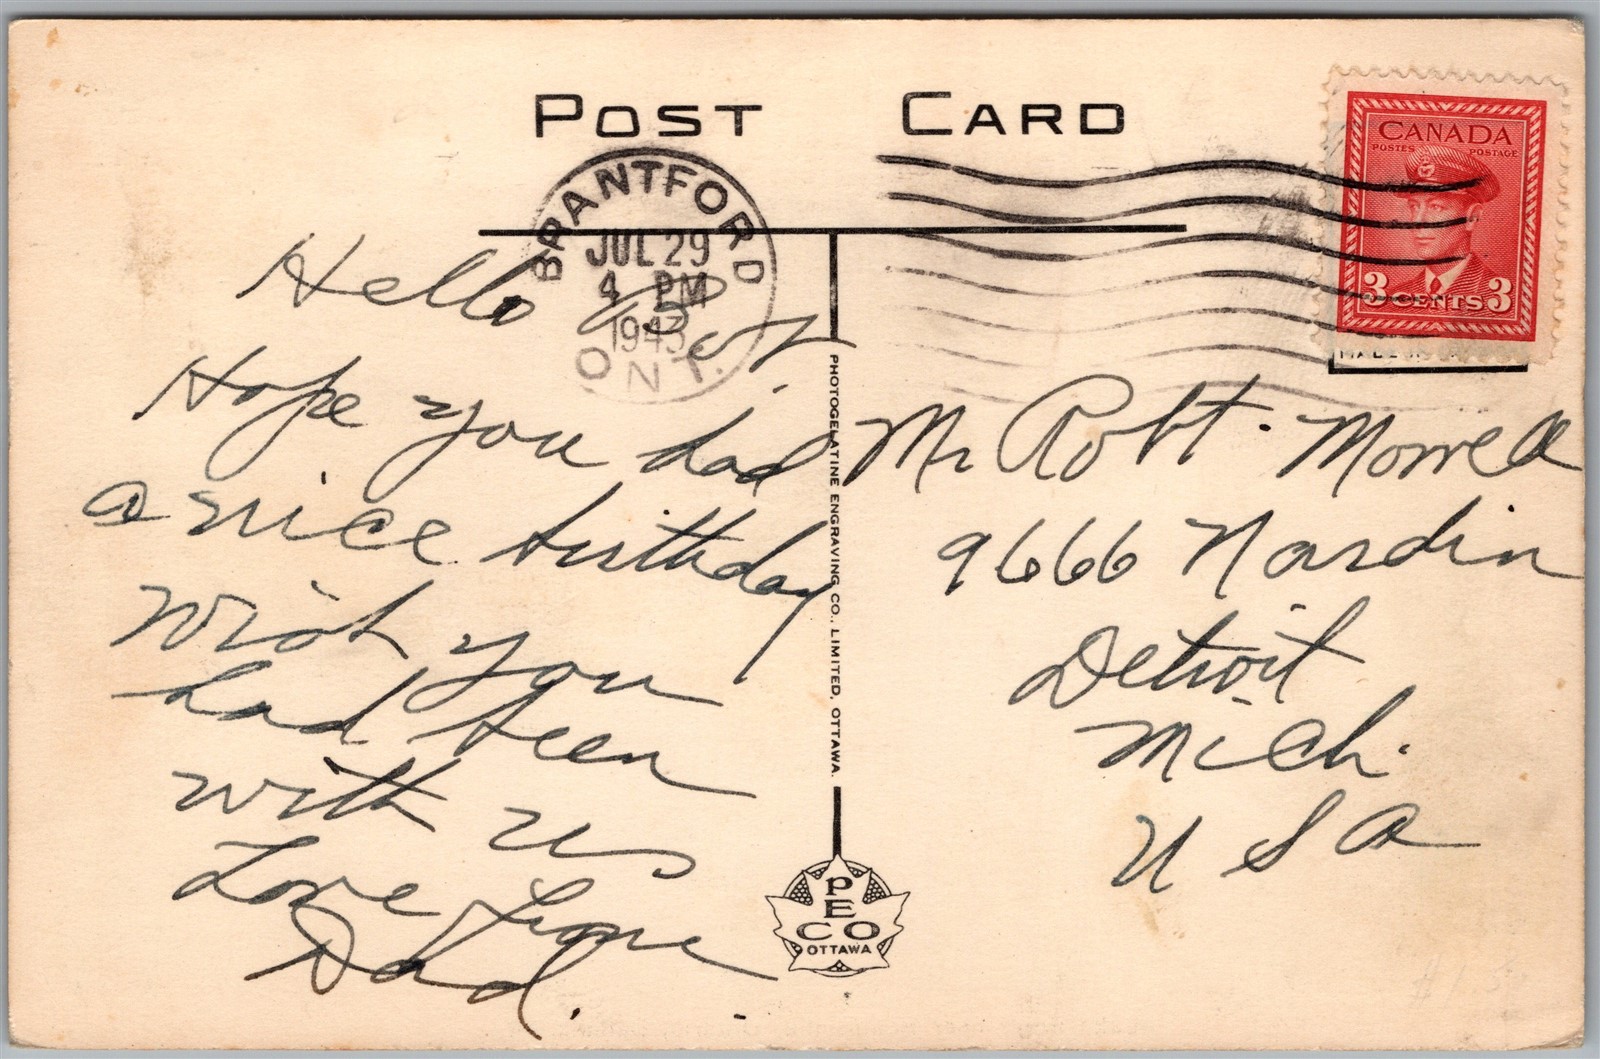 POST CARD
CANADA
POSTES POSTAGE
3 CENTS 3
BRANTFORD
JUL 29
4 PM
1943
ONT.
Hello Bob
Hope you had
a nice birthday
Wish you
had been
with us
Love From
Dad.
PHOTOGELATINE ENGRAVING CO., LIMITED, OTTAWA.
Mr Robt. Morrell
9666 Nardin
Detroit
Mich.
USA
PECO
OTTAWA